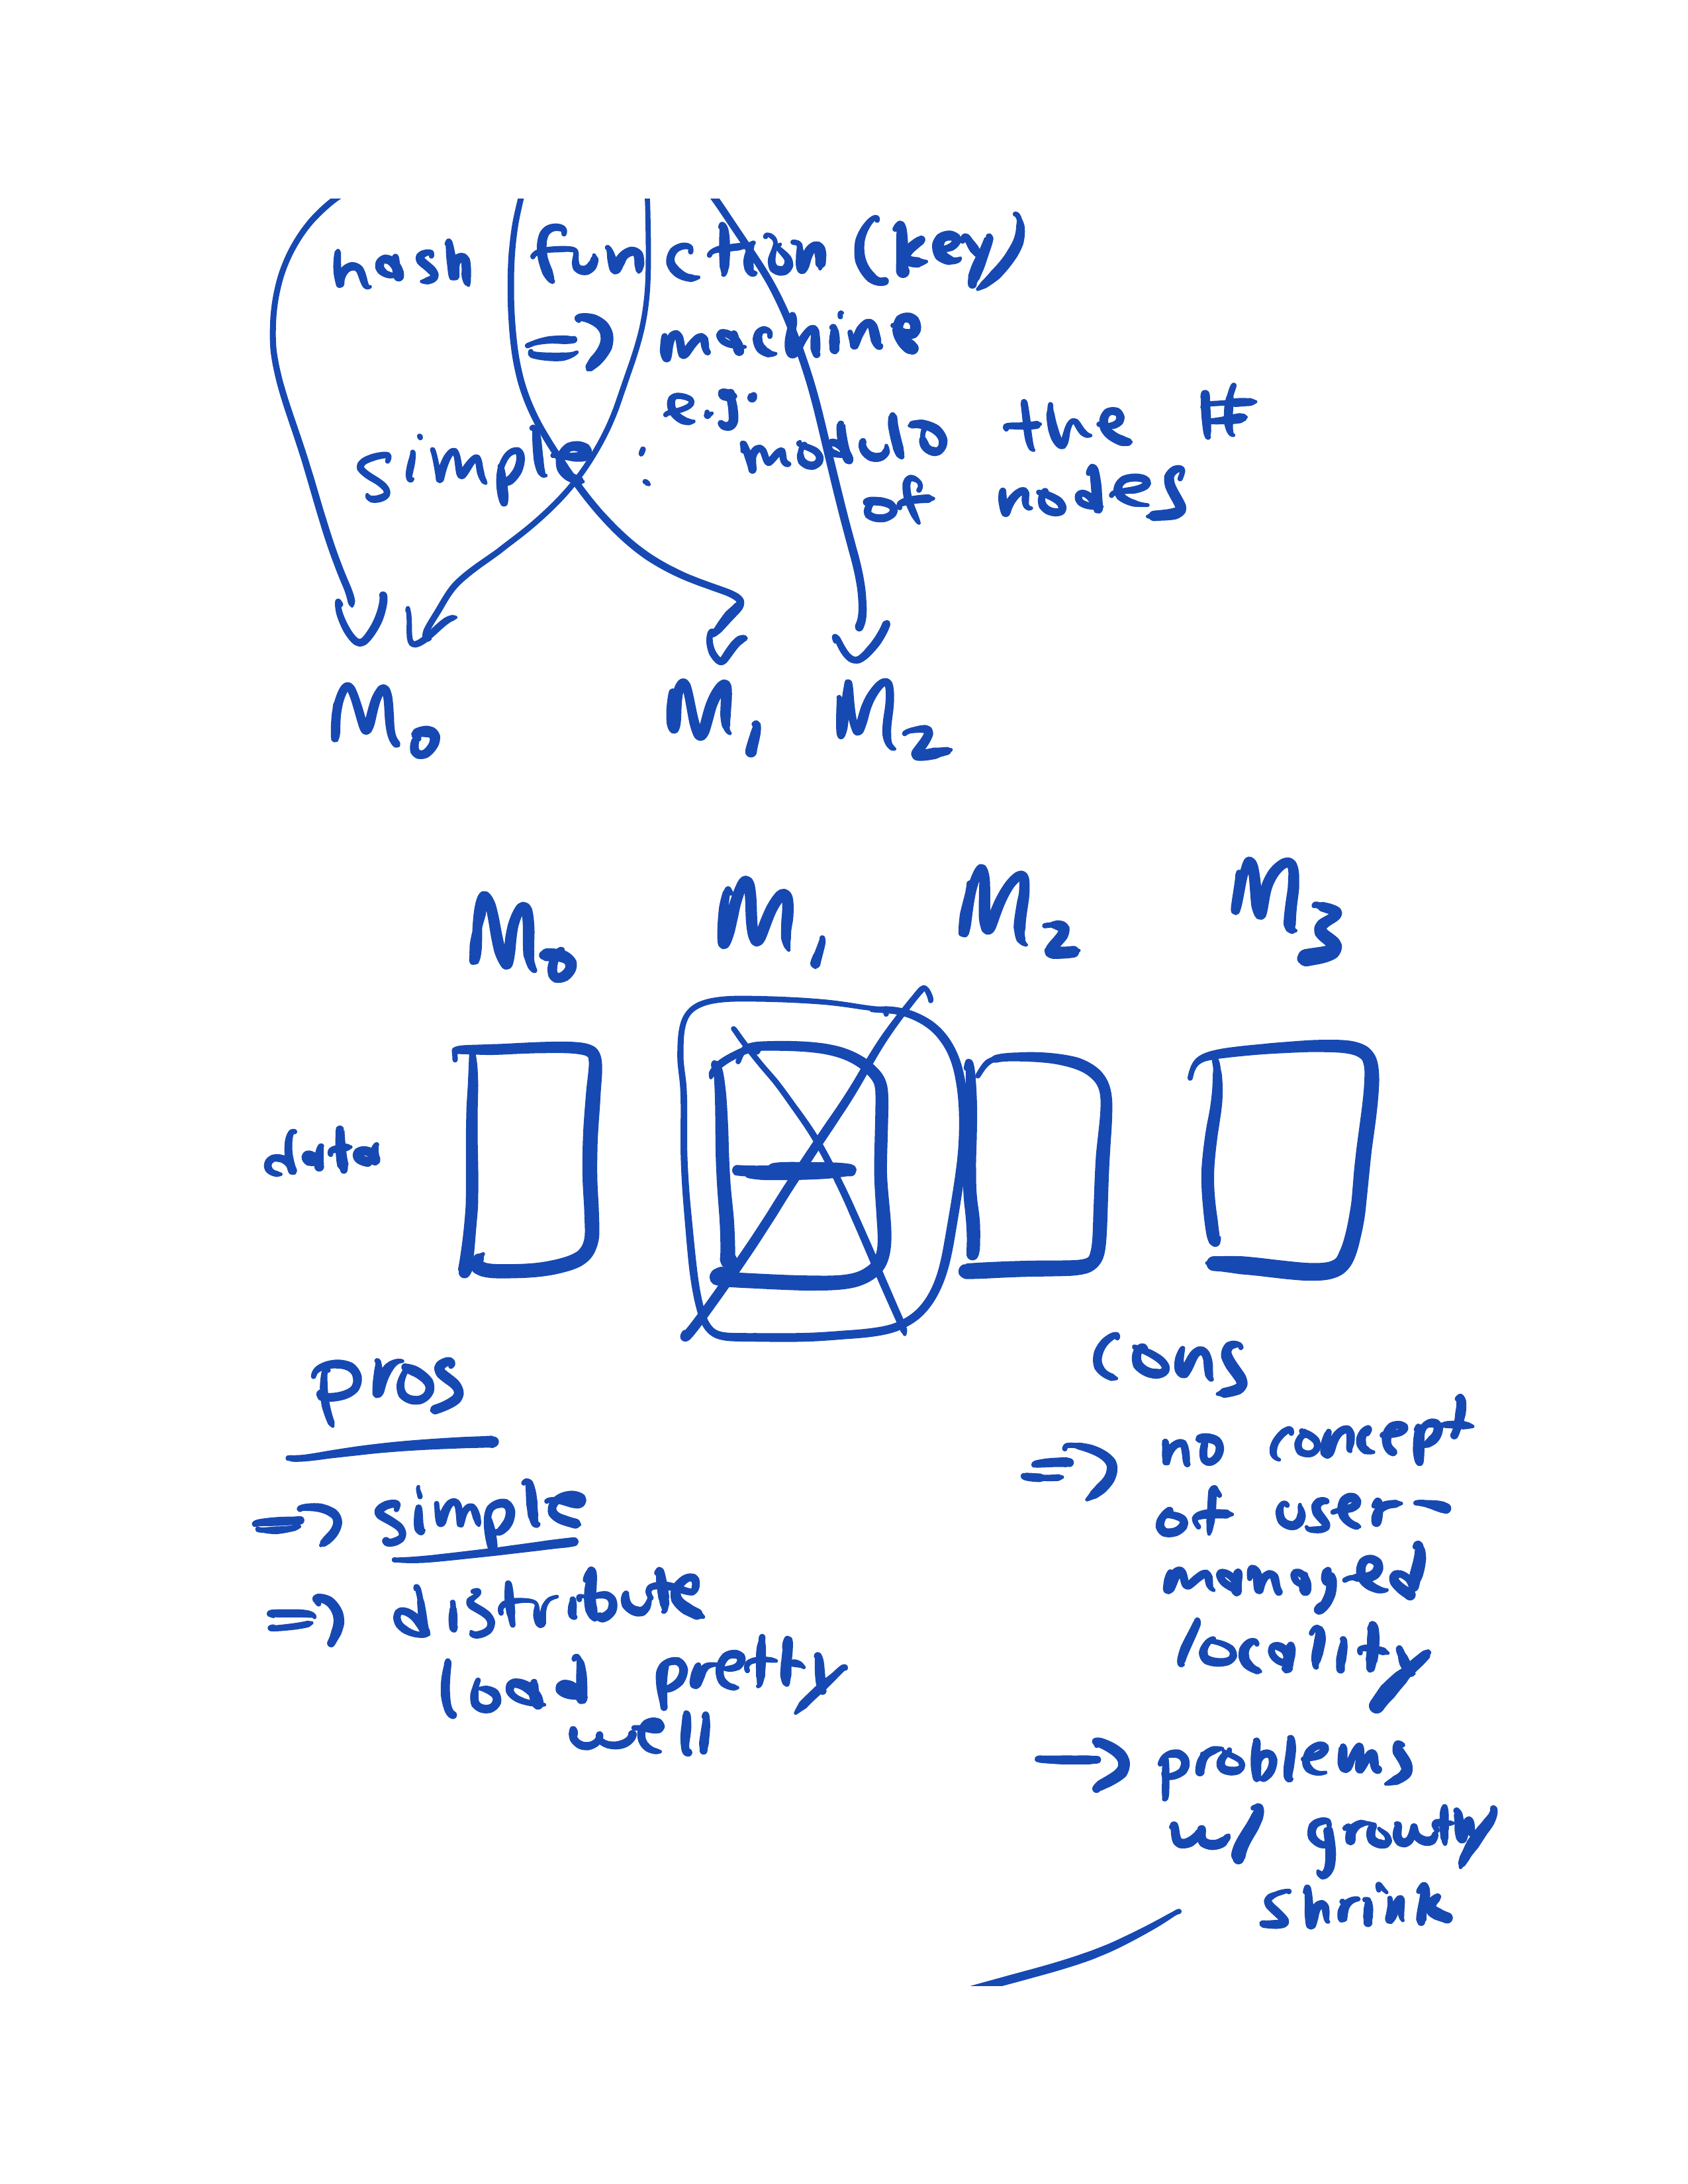 hash function (key)
=> machine
e.g.
simple : modulo the #
of nodes
M0 M1 M2
M0 M1 M2 M3
data
pros
=> simple
=> distribute
load pretty
well
cons
=> no concept
of user-
managed
locality
-> problems
w/ growth/
shrink